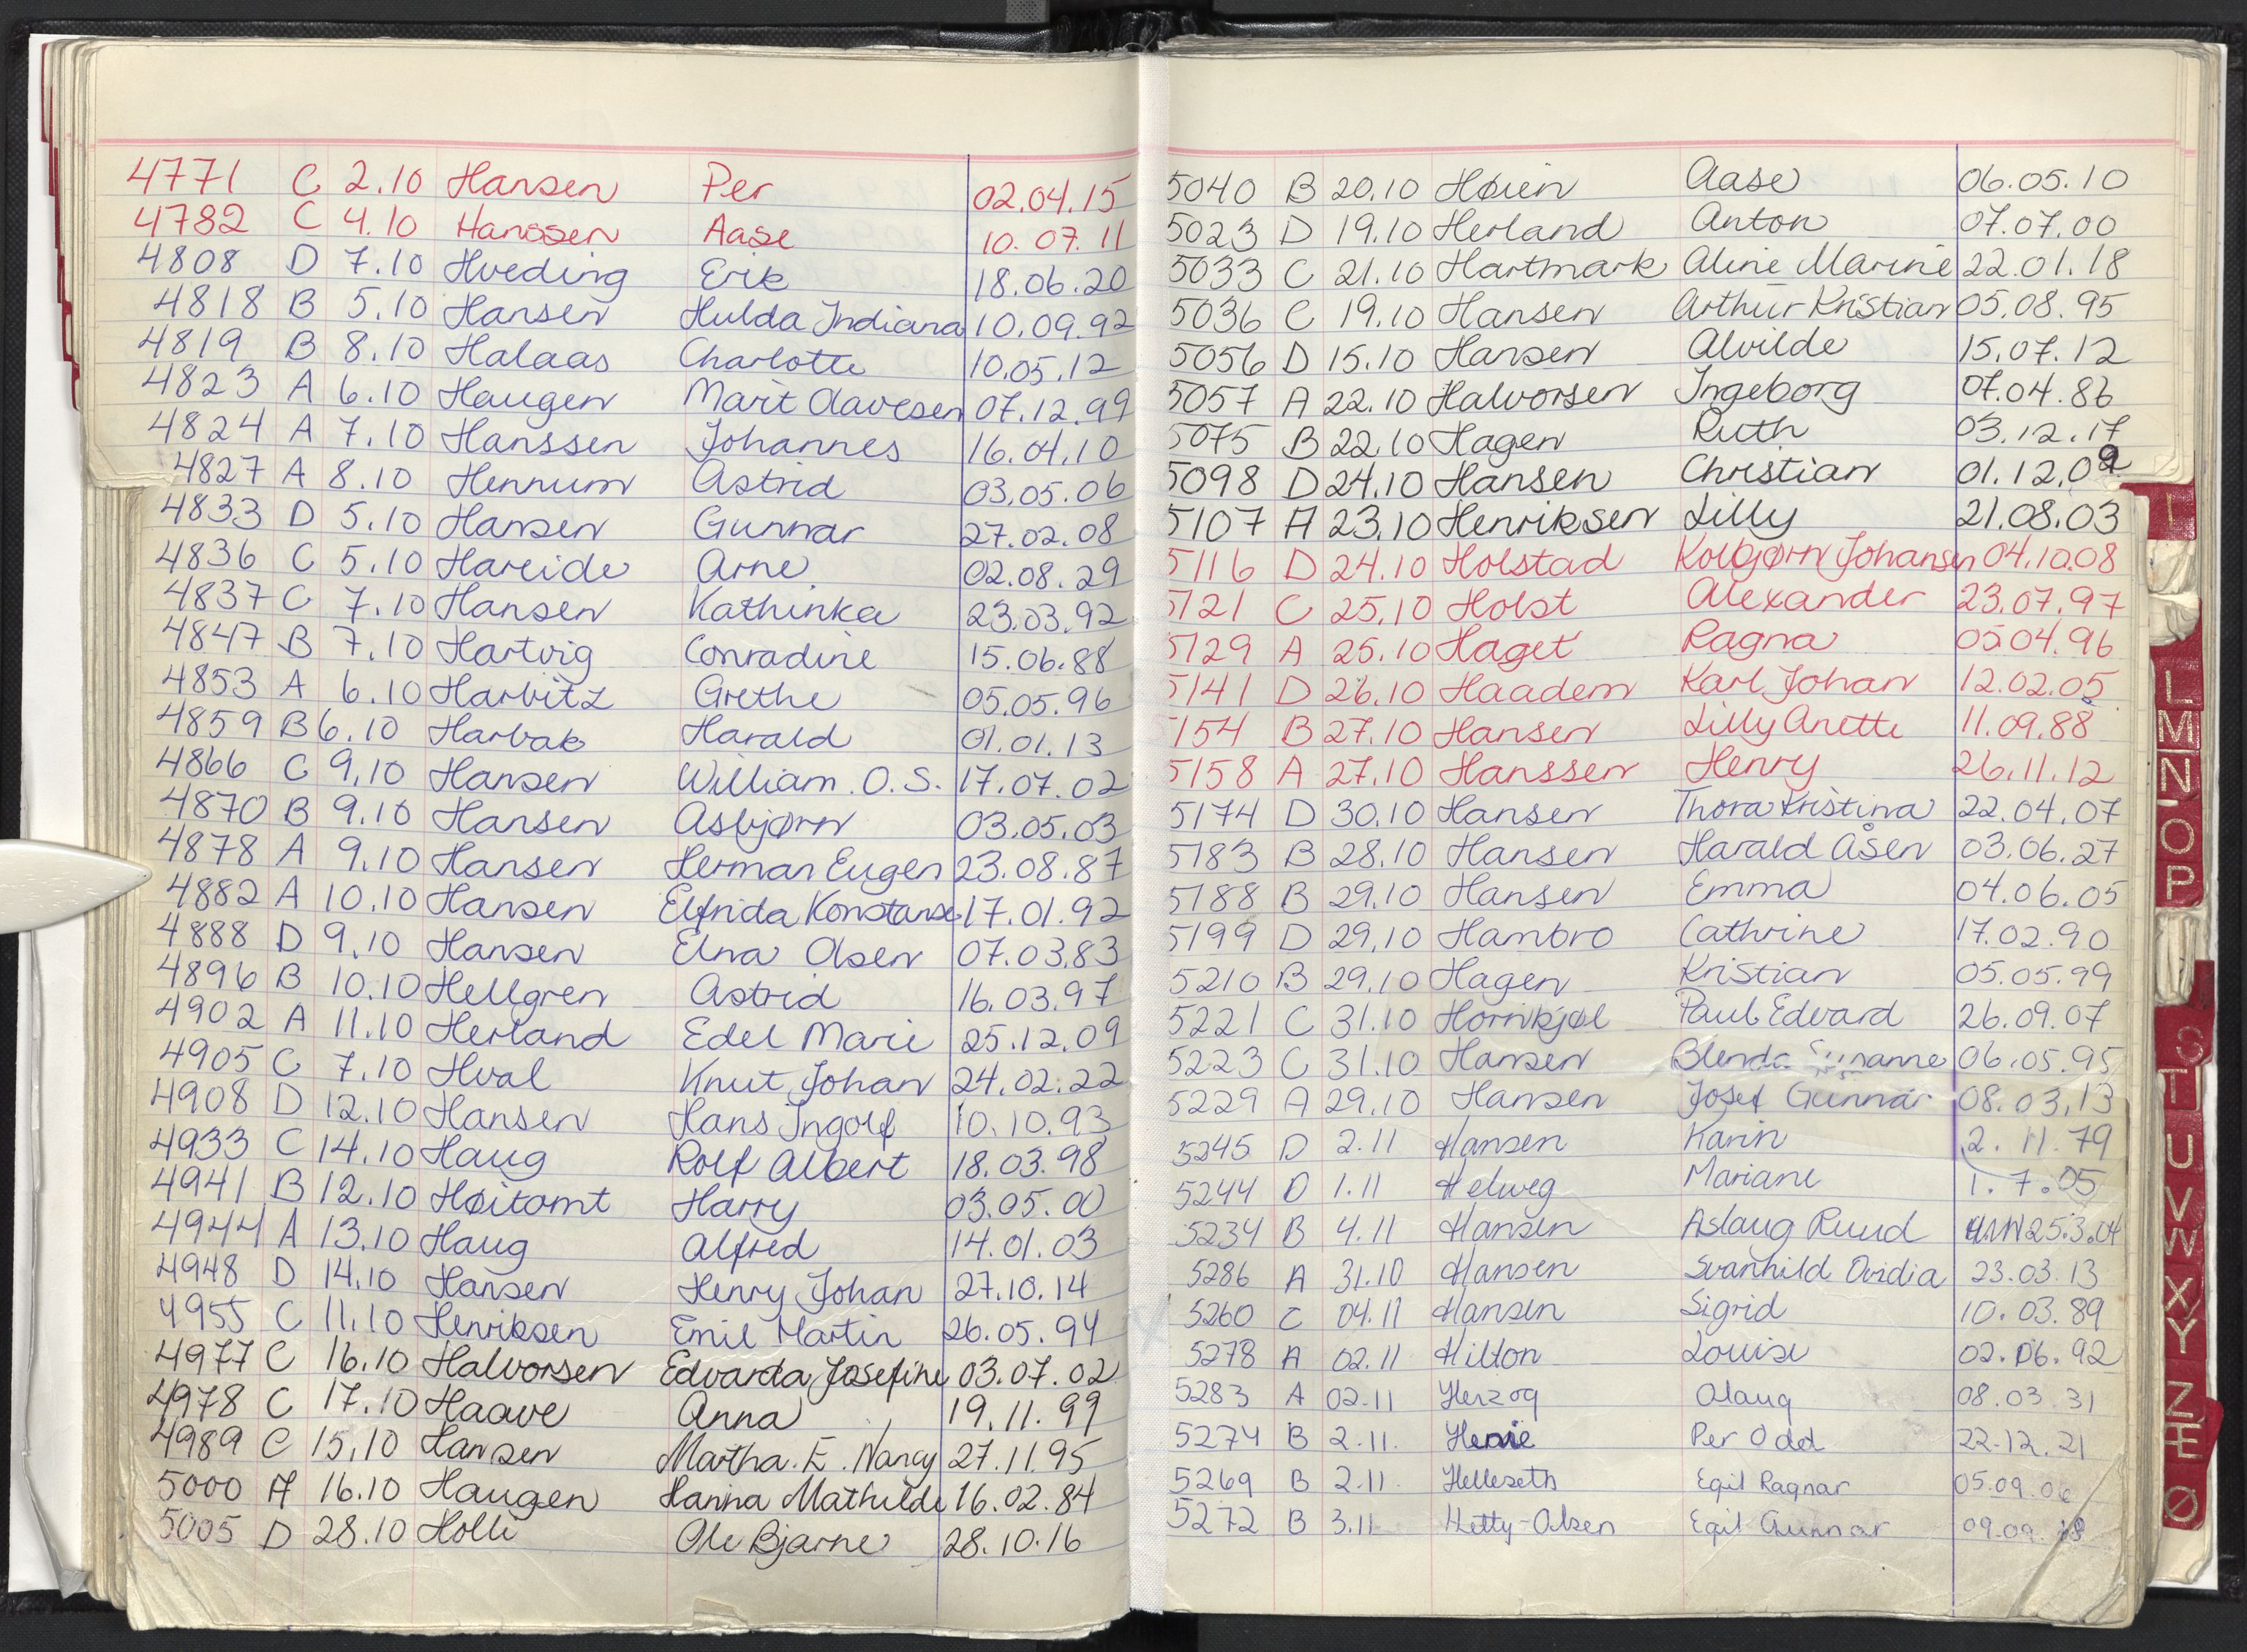 4771 C 2.10 Hansen Per 02.04.15
4782 C 4.10 Hanssen Aase 10.07.11
4808 D 7.10 Hveding Erik 18.06.20
4818 B 5.10 Hansen Hulda Indiana 10.09.92
4819 B 8.10 Halaas Charlotte 10.05.12
4823 A 6.10 Haugen Marit Olavesen 07.12.99
4824 A 7.10 Hanssen Johannes 16.04.10
4827 A 8.10 Hennum Astrid 03.05.06
4833 D 5.10 Hansen Gunnar 27.02.08
4836 C 5.10 Hareide Arne 02.08.29
4837 C 7.10 Hansen Kathinka 23.03.92
4847 B 7.10 Hartvig Conradine 15.06.88
4853 A 6.10 Harbitz Grethe 05.05.96
4859 B 6.10 Harbak Harald 01.01.13
4866 C 9.10 Hansen William O.S. 17.07.02
4870 B 9.10 Hansen Asbjørn 03.05.03
4878 A 9.10 Hansen Herman Eugen 23.08.87
4882 A 10.10 Hansen Elfrida Konstanse 17.01.92
4888 D 9.10 Hansen Elna Olsen 07.03.83
4896 B 10.10 Hellgren Astrid 16.03.97
4902 A 11.10 Herland Edel Marie 25.12.09
4905 C 7.10 Hval Knut Johan 24.02.22
4908 D 12.10 Hansen Hans Ingolf 10.10.93
4933 C 14.10 Haug Rolf Albert 18.03.98
4941 B 12.10 Høitomt Harry 03.05.00
4944 A 13.10 Haug Alfred 14.01.03
4948 D 14.10 Hansen Henry Johan 27.10.14
4955 C 11.10 Henriksen Emil Martin 26.05.94
4977 C 16.10 Halvorsen Edvarda Josefine 03.07.02
4978 C 17.10 Haave Anna 19.11.99
4989 C 15.10 Hansen Martha. E. Nancy 27.11.95
5000 A 16.10 Haugen Hanna Mathilde 16.02.84
5005 D 28.10 Holli Ole Bjarne 28.10.16
5040 B 20.10 Høien Aase 06.05.10
5023 D 19.10 Herland Anton 07.07.00
5033 C 21.10 Hartmark Aline Marine 22.01.18
5036 C 19.10 Hansen Arthur Kristian 05.08.95
5056 D 15.10 Hansen Alvilde 15.07.12
5057 A 22.10 Halvorsen Ingeborg 07.04.86
5075 B 22.10 Hagen Ruth 03.12.17
5098 D 24.10 Hansen Christian 01.12.09
5107 A 23.10 Henriksen Lilly 21.08.03
5116 D 24.10 Holstad Kolbjørn Johansen 04.10.08
5121 C 25.10 Holst Alexander 23.07.97
5129 A 25.10 Haget Ragna 05.04.96
5141 D 26.10 Haadem Karl Johan 12.02.05
5154 B 27.10 Hansen Lilly Anette 11.09.88
5158 A 27.10 Hanssen Henry 26.11.12
5174 D 30.10 Hansen Thora Kristina 22.04.07
5183 B 28.10 Hansen Harald Åsen 03.06.27
5188 B 29.10 Hansen Emma 04.06.05
5199 D 29.10 Hambro Cathrine 17.02.90
5210 B 29.10 Hagen Kristian 05.05.99
5221 C 31.10 Hornkjøl Paul Edvard 26.09.07
5223 C 31.10 Hansen Blenda 06.05.95
5229 A 29.10 Hansen Josef Gunnar 08.03.13
5245 D 2.11 Hansen Karin 2.11.79
5244 D 1.11 Helweg Mariane 1.7.05
5234 B 4.11 Hansen Aslaug Ruud 25.3.04
5286 A 31.10 Hansen Svanhild Ovidia 23.03.13
5260 C 04.11 Hansen Sigrid 10.03.89
5278 A 02.11 Hilton Louise 02.06.92
5283 A 02.11 Herzog Olaug 08.03.31
5274 B 2.11. Henie Per Odd 22.12.21
5269 B 2.11. Helleseth Egil Ragnar 05.09.06
5272 B 3.11 Hetty-Olsen Egil Gunnar 09.09.
I
L
M
N
O
P
S
T
U
V
W
X
Y
Z
Æ
Ø